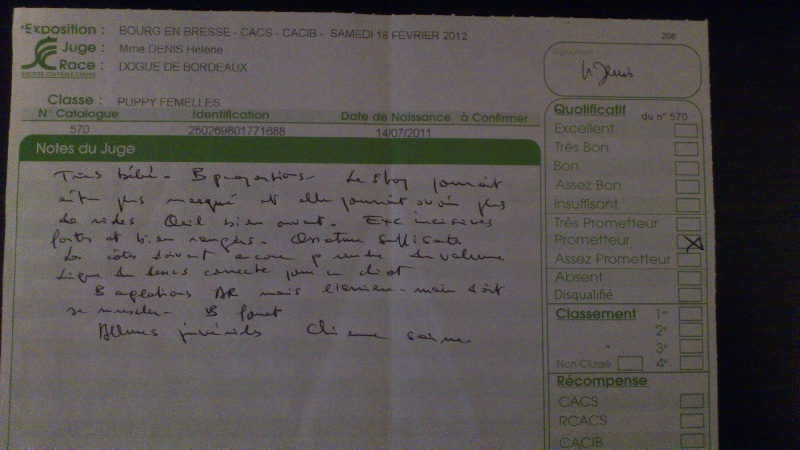 Exposition : BOURG EN BRESSE - CACS - CACIB - SAMEDI 18 FÉVRIER 2012
206
Juge : Mme DENIS Hélène
Race : DOGUE DE BORDEAUX
SOCIÉTÉ CENTRALE CANINE
Signature
H Denis
Classe : PUPPY FEMELLES
N° Catalogue Identification Date de Naissance à Confirmer
570 250269801771688 14/07/2011
Notes du Juge
Très bébé - B proportions - Le stop pourrait
être plus marqué et elle pourrait avoir plus
de rides Oeil bien ouvert - Exc incisives
fortes et bien rangées - Ossature suffisante
Les côtes doivent encore prendre du volume
Ligne du dessus correcte pour un chiot
B angulations AR mais l'arrière-main doit
se muscler - B fouet
Allures juvéniles Chienne saine
Qualificatif du n° 570
Excellent
Très Bon
Bon
Assez Bon
Insuffisant
Très Prometteur
Prometteur X
Assez Prometteur
Absent
Disqualifié
Classement 1er
2e
3e
Non Classé 4e
Récompense
CACS
RCACS
CACIB